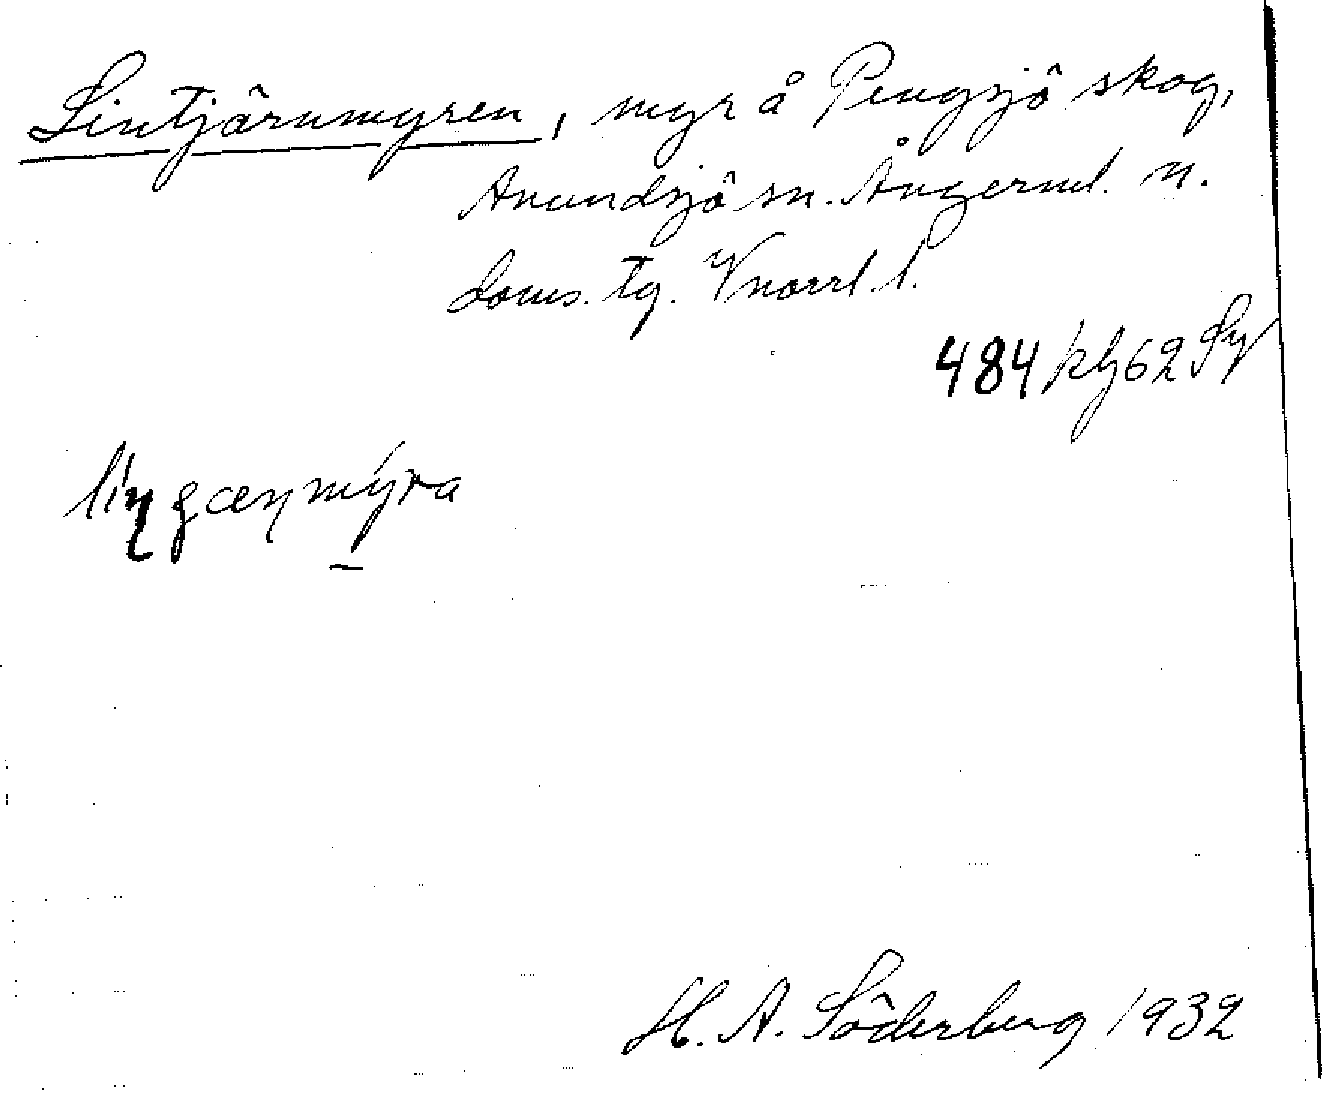 Lintjärnmyren, myr å Pengsjö skog,
Anundsjö sn. Ångerml. n.
doms. tg. Vnorrl. l.
484 kbl 62 Sy
H. A. Söderberg 1932